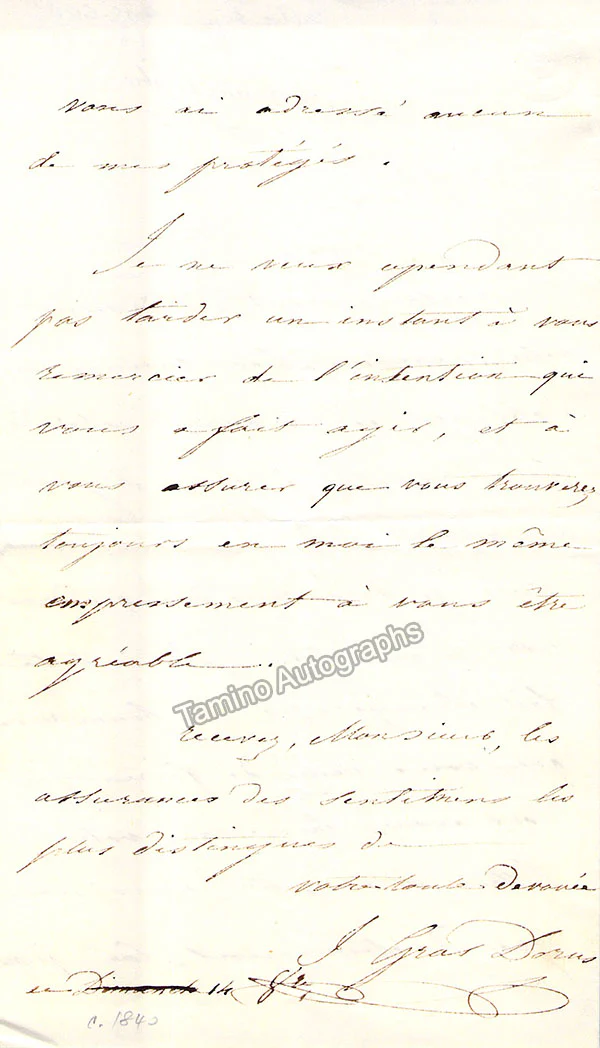 vous ai adressé aucun
de mes protégés.
Je ne veux cependant
pas tarder un instant à vous
remercier de l'intention qui
vous a fait agir, et à
vous assurer que vous trouverez
toujours en moi le même
empressement à vous être
agréable.
Tamino Autographs
recevez, Monsieur, les
assurances des sentimens les
plus distingués de
votre toute dévouée
J Gras Dorus
ce Dimanche 14
c. 1840